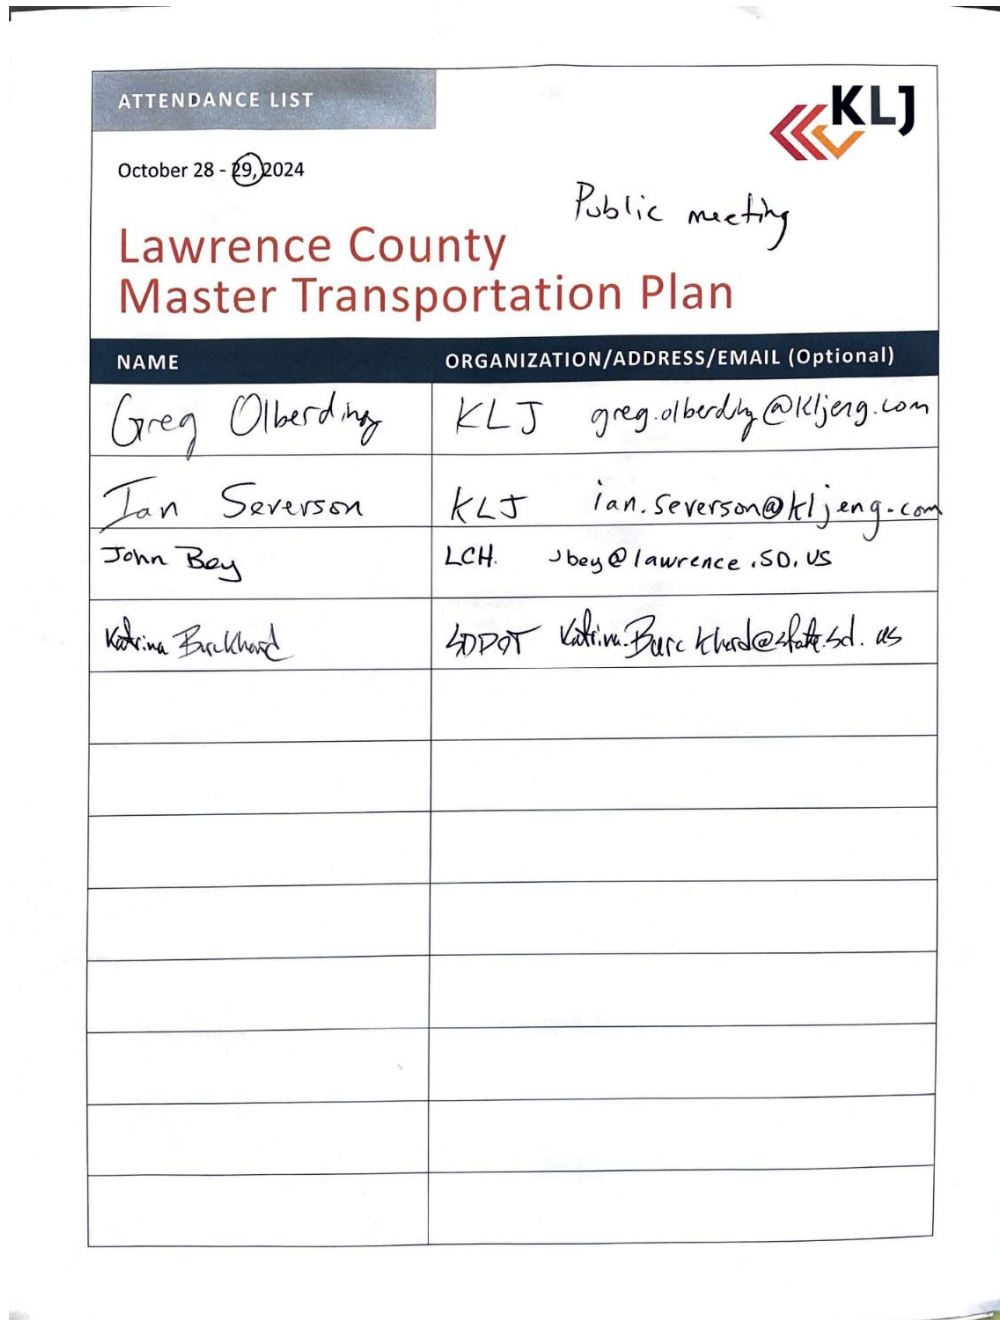 ATTENDANCE LIST
KLJ
October 28 - 29, 2024
Public meeting
Lawrence County
Master Transportation Plan
NAME ORGANIZATION/ADDRESS/EMAIL (Optional)
Greg Olberding KLJ greg.olberding@kljeng.com
Ian Severson KLJ ian.severson@kljeng.com
John Bey LCH. Jbey@lawrence.SD.US
Katrina Burckhard SDDOT Katrina.Burckhard@state.sd.us